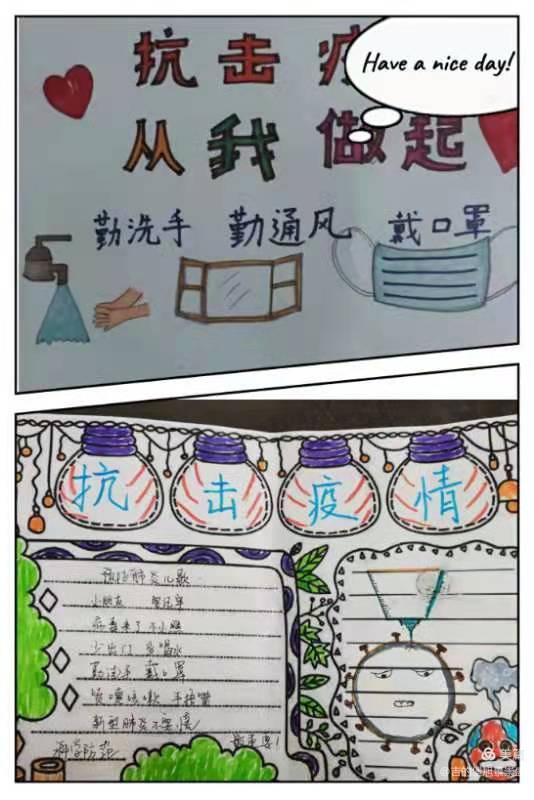 Have a nice day!
抗击疫
从我做起
勤洗手 勤通风 戴口罩
抗击疫情
预防肺炎儿歌
小朋友
病毒来了
少出门 多喝水
勤洗手 戴口罩
咳嗽 手捂嘴
新型肺炎
科学防范
美篇